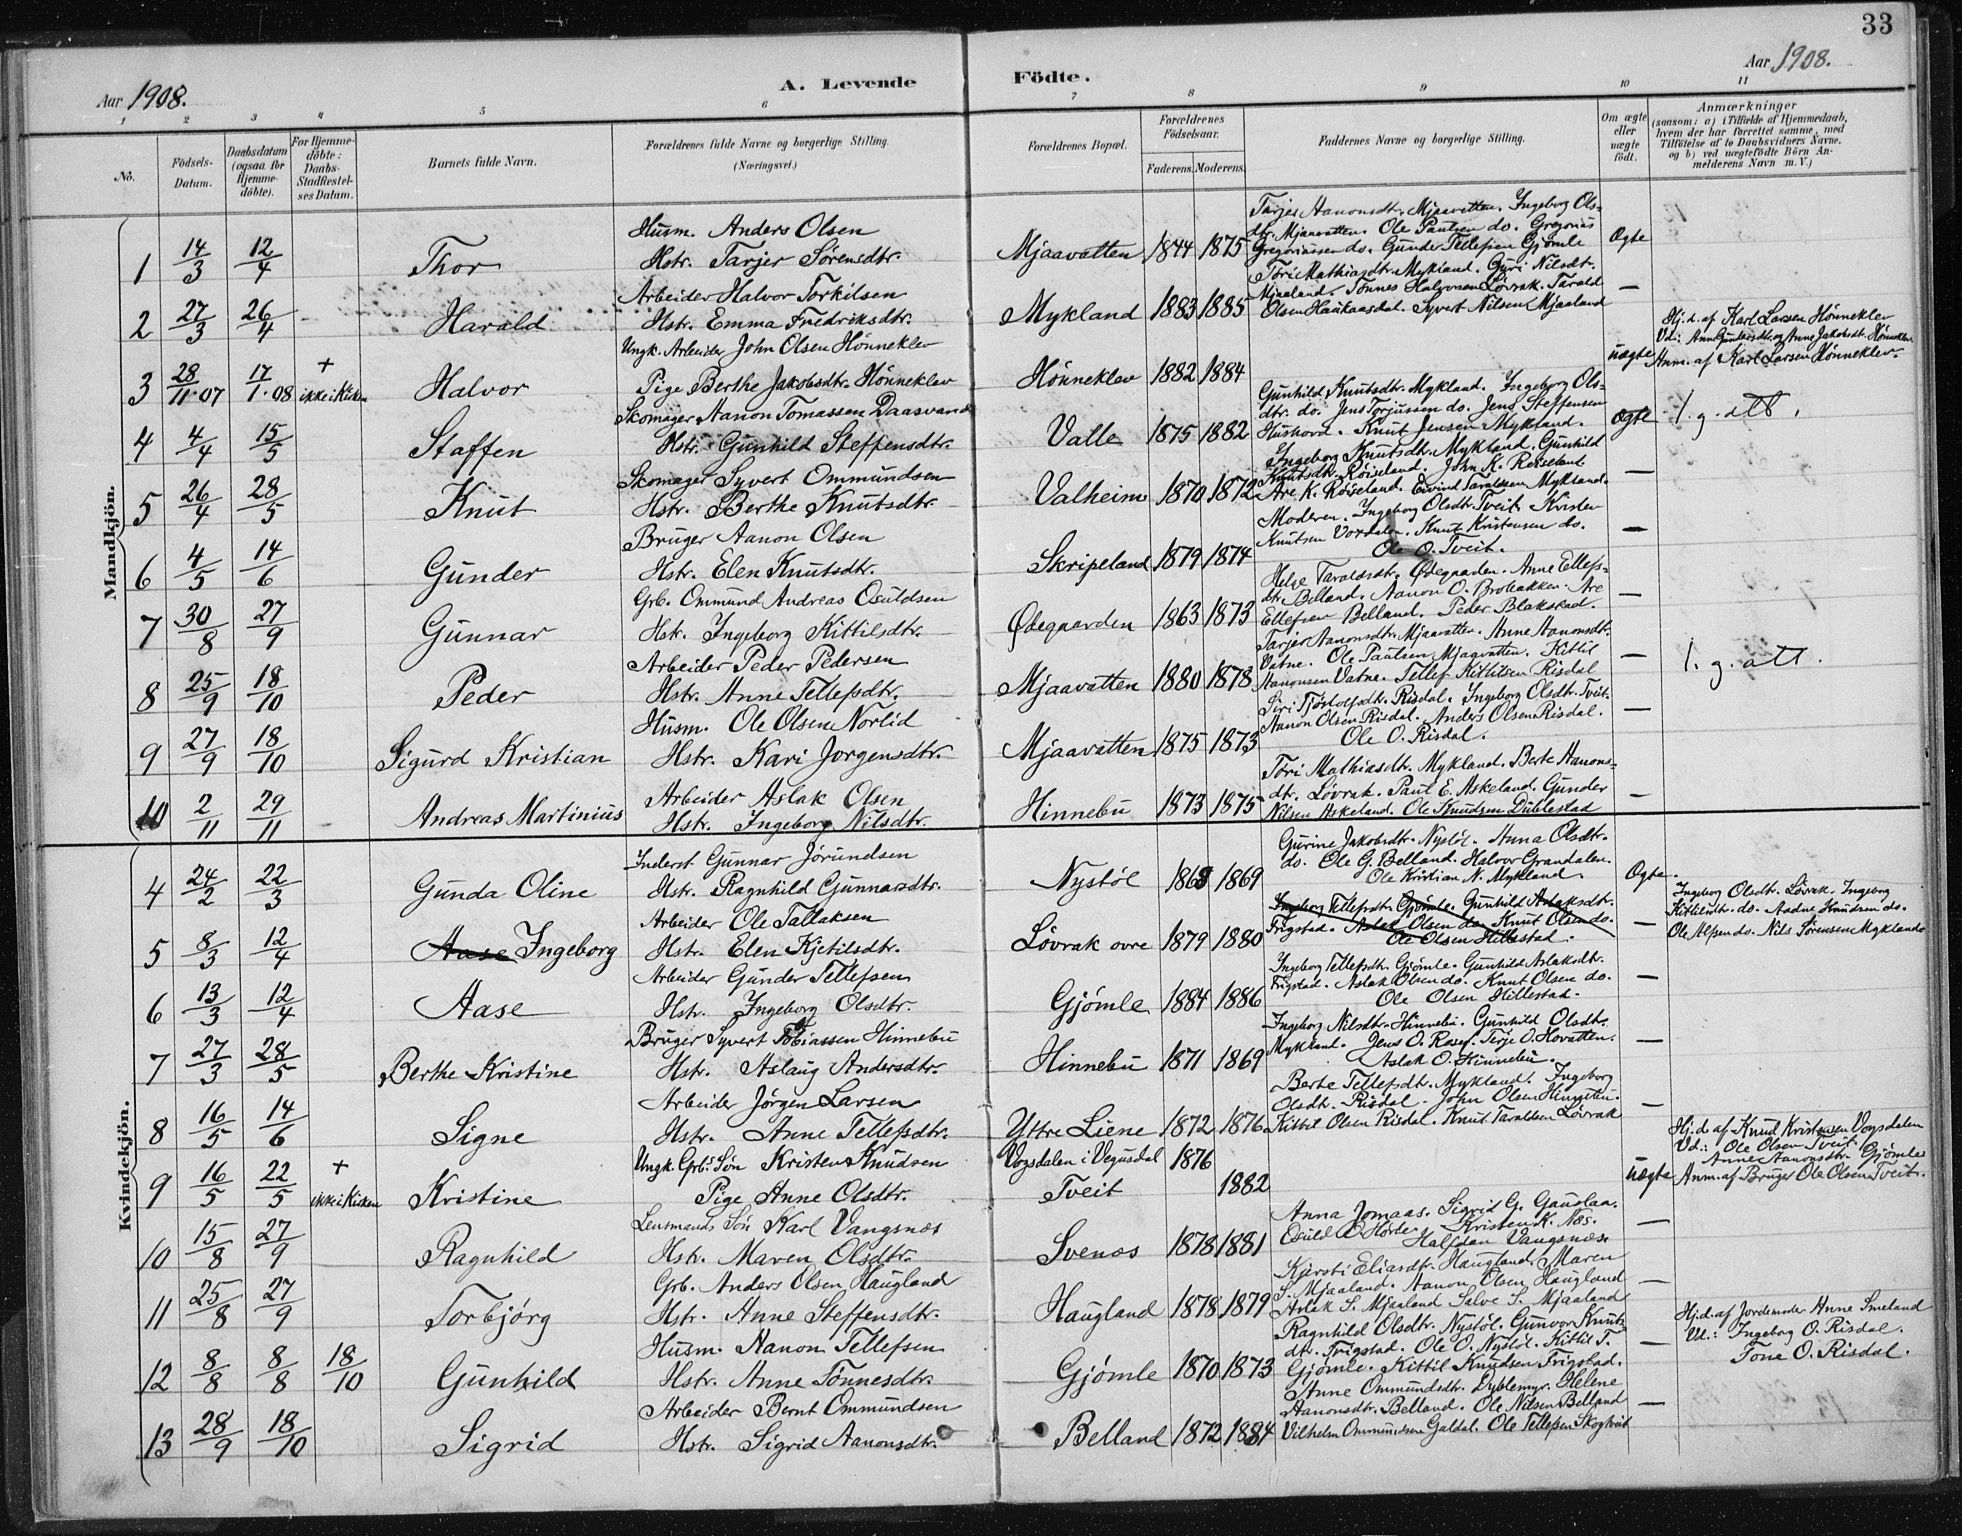 33
Aar 1908.
A. Levende
Födte.
Aar 1908.
1 2 3 4 5 6 7 8 9 10 11
No.
Födsels-
Datum.
Daabsdatum
(ogsaa for
Hjemme-
döbte).
For Hjemme-
döbte:
Daabs-
Stadfæstel-
ses Datum.
Barnets fulde Navn.
Forældrenes fulde Navne og borgerlige Stilling.
(Næringsvei.)
Forældrenes Bopæl.
Forældrenes
Födselsaar.
Faderens. Moderens.
Faddernes Navne og borgerlige Stilling.
Om ægte
eller
uægte
födt.
Anmærkninger
(saasom: a) i Tilfælde af Hjemmedaab,
hvem der har forrettet samme, med
Tilföielse af to Daabsvidners Navne.
og b) ved uægtefödte Börn An-
melderens Navn m. V.)
Mandkjön.
1 14/3 12/4 Thor
Husm. Anders Olsen
Hstr. Tarjer Sörensdtr.
Mjaavatten 1844 1875
Tarjer Aanonsdtr. Mjaavatten. Ingeborg Ols-
dtr. Mjaavatten. Ole Paulsen do. Gregorius
Gregoriussen do. Gunder Tellefsen Gjömle
Ægte
2 27/3 26/4 Harald
Arbeider Halvor Torkilsen
Hstr. Emma Fredriksdtr.
Mykland 1883 1885
Töri Mathiasdtr. Mykland. Guri Nilsdt.
Mjaaland. Tönnes Halvorsen Lövrak. Tarald
Olsen Haukaasdal. Syvert Nilsen Mjaaland
—
3 28/11.07 17/1.08 + ikke i Kirken Halvor
Ungk. Arbeider John Olsen Hönneklev
Pige Berthe Jakobsdtr. Hönneklev
Hönneklev 1882 1884
uægte
Hj.d. af Karl Larsen Hönneklev
Vd.: Anne Gundersdtr. og Anne Jakobsdt. Hönneklev.
Anm. af Karl Larsen Hönneklev.
4 4/4 15/5 Staffen
Skomager Aanon Tomassen Daasvand
Hstr. Gunhild Steffensdtr.
Valle 1875 1882
Gunhild Knutsdtr. Mykland. Ingeborg Ols-
dtr. do. Jens Torjussen do. Jens Steffensen
Hushovd. Knut Jensen Mykland.
Ægte
1. g. att.
5 26/4 28/5 Knut
Skomager Syvert Ommundsen
Hstr. Berthe Knutsdtr.
Valheim 1870 1872
Ingeborg Knutsdtr. Mykland. Gunhild
Knutsdtr. Röiseland. John K. Röiseland.
Are K. Röiseland. Eivind Taraldsen Mykland.
—
6 4/5 14/6 Gunder
Bruger Aanon Olsen
Hstr. Elen Knutsdtr.
Skripeland 1879 1874
Moderen. Ingeborg Olsdtr. Tveit. Kristen
Knutsen Vordalen. Knut Kristensen do.
Ole O. Tveit.
—
7 30/8 27/9 Gunnar
Grb. Ommund Andreas Osuldsen
Hstr. Ingeborg Kittilsdtr.
Ødegaarden 1863 1873
Helge Taraldsdtr. Ødegaarden. Anne Ellefs-
dtr. Belland. Aanon O. Brobakken. Are
Ellefsen Belland. Peder Blakstad.
—
8 25/9 18/10 Peder
Arbeider Peder Pedersen
Hstr. Anne Tellefsdtr.
Mjaavatten 1880 1878
Tarjer Aanonsdtr. Mjaavatten. Anne Aanonsdtr.
Vatne. Ole Paulsen Mjaavatten. Kittil
Aanonsen Vatne. Tellef Kittilsen Risdal
—
1. g. att.
9 27/9 18/10 Sigurd Kristian
Husm. Ole Olsen Norlid
Hstr. Kari Jorgensdtr.
Mjaavatten 1875 1873
Siri Tjöstolfsdtr. Risdal. Ingeborg Olsdt. Tveit.
Aanon Olsen Risdal. Anders Olsen Risdal.
Ole O. Risdal.
—
10 2/11 29/11 Andreas Martinius
Arbeider Aslak Olsen
Hstr. Ingeborg Nilsdtr.
Hinnebu 1873 1875
Töri Mathiasdtr. Mykland. Berte Aanons-
dtr. Lövrak. Paul E. Askeland. Gunder
Nilsen Askeland. Ole Knudsen Dublestad
—
Kvindekjön.
4 24/2 22/3 Gunda Oline
Inderst Gunnar Jörundsen
Hstr. Ragnhild Gunnarsdtr.
Nystöl 1868 1869
Gurine Jakobsdtr. Nystöl. Anna Olsdtr.
do. Ole G. Belland. Halvor Grandalen.
Ole Kristian N. Mykland.
Ægte.
5 8/3 12/4 Aase Ingeborg
Arbeider Ole Tallaksen
Hstr. Elen Kjetilsdtr.
Lövrak ovre 1879 1880
Ingeborg Tellefsdt. Gjömle. Gunhild Aslaksdt.
Frigstad. Aslak Olsen do. Knut Olsen do.
Ole Olsen Hillestad.
—
Ingeborg Olsdtr. Lövrak. Ingeborg
Kittilsdtr. do. Aadne Knudsen do.
Ole Alfsen do. Nils Sörensen Mykland
6 13/3 12/4 Aase
Arbeider Gunder Tellefsen
Hstr. Ingeborg Olsdtr.
Gjömle 1884 1886
Ingeborg Tellefsdt. Gjömle. Gunhild Aslaksdtr.
Frigstad. Aslak Olsen do. Knut Olsen do.
Ole Olsen Hillestad.
—
7 27/3 28/5 Berthe Kristine
Bruger Syvert Tobiassen Hinnebu
Hstr. Aslaug Andersdtr.
Hinnebu 1871 1869
Ingeborg Nilsdtr. Hinnebu. Gunhild Olsdtr.
Mykland. Jens O. Rosef. Terje O. Hovatten.
Aslak O. Hinnebu.
—
8 16/5 14/6 Signe
Arbeider Jörgen Larsen
Hstr. Anne Tellefsdtr.
Yttre Liene 1872 1876
Berte Tellefsdt. Mykland. Ingeborg
Olsdt. Risdal. John Olsen Hinnebu.
Kittil Olsen Risdal. Knut Taraldsen Lövrak
—
9 16/5 22/5 + ikke i Kirken Kristine
Ungk. Grb.s Sön Kristen Knudsen
Pige Anne Olsdtr.
Vogsdalen i Vegusdal 1876
Tveit 1882
uægte
Hj.d. af Knud Kristensen Vogsdalen
Vd.: Ole Olsen Tveit.
Anne Aanonsdtr. Gjömle
Anm. af Bruger Ole Olsen Tveit.
10 15/8 27/9 Ragnhild
Lensmands Sön Karl Vangsnæs
Hstr. Maren Olsdtr.
Svenos 1878 1881
Anna Jomaas. Sigrid G. Gauslaa.
Osuld O. Hörte. Kristen K. Næs.
Halfdan Vangsnæs.
—
11 25/8 27/9 Torbjörg
Grb. Anders Olsen Haugland
Hstr. Anne Steffensdtr.
Haugland 1878 1879
Kjersti Eliasdtr. Haugland. Maren
S. Mjaaland. Aanon Olsen Haugland
Aslak S. Mjaaland. Salve S. Mjaaland
—
12 8/8 8/8 18/10 Gunhild
Husm. Aanon Tellefsen
Hstr. Anne Tönnesdtr.
Gjömle 1870 1873
Ragnhild Olsdtr. Nystöl. Gunvor Knuts-
dt. Frigstad. Ole O. Nystöl. Kittil T.
Gjömle. Kittil Knudsen Frigstad.
—
Hj.d. af Jordemoder Anne Smeland
Vd.: Ingeborg O. Risdal.
Tone O. Risdal.
13 28/9 18/10 Sigrid
Arbeider Bernt Ommundsen
Hstr. Sigrid Aanonsdtr.
Belland 1872 1884
Anne Ommundsdtr. Dyblemyr. Helene
Aanonsdtr. Belland. Ole Nilsen Belland
Vilhelm Ommundsen Galdal. Ole Tellefsen Skogtveit
—